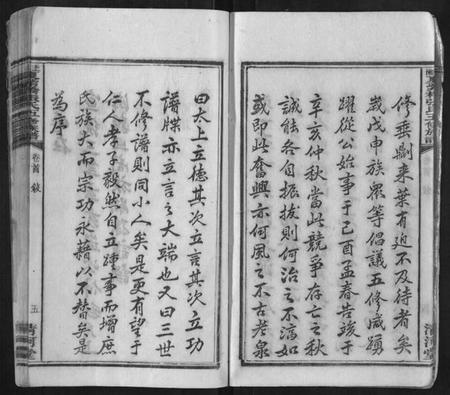 修垂剿來葉有迫不及待者矣
歲戊申族衆等倡議五修咸踴
躍從公始事于己酉孟春告竣于
辛亥仲秋當此競爭存亡之秋
誠能各自振拔則何治之不濤如
或即此奮興亦何風之不古老泉
曰太上立德其次立言其次立功
譜牒亦立言之大端也又曰三世
不修譜則同小人矣是更有望于
仁人孝子毅然自立踵事而增庶
氏族大而宗功永藉以不替矣是
為序
卷首 敍
五
清河堂
清河堂